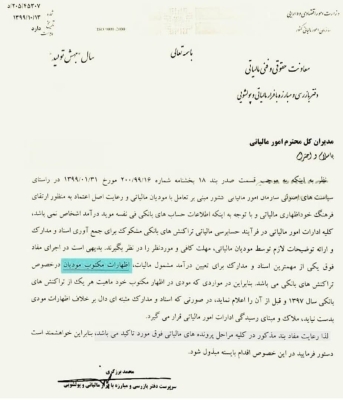 ۲۰۵/۴۵۳۰۷/د
۱۳۹۹/۱۰/۱۳
دارد
باسمه تعالی
سال "جهش تولید"
معاونت حقوقی و فنی مالیاتی
دفتر بازرسی و مبارزه با فرار مالیاتی و پولشویی
مدیران کل محترم امور مالیاتی
با سلام و احترام
نظر به اینکه به موجب قسمت صدر بند ۱۸ بخشنامه شماره ۲۰۰/۹۹/۱۶ مورخ ۱۳۹۹/۰۱/۳۱ در راستای
سیاست های اصولی سازمان امور مالیاتی کشور مبنی بر تعامل با مودیان مالیاتی و رعایت اصل اعتماد به منظور ارتقای
فرهنگ خوداظهاری مالیاتی و با توجه به اینکه اطلاعات حساب های بانکی فی نفسه موید درآمد اشخاص نمی باشد،
کلیه ادارات امور مالیاتی در فرآیند حسابرسی مالیاتی تراکنش های بانکی مشکوک برای جمع آوری اسناد و مدارک
و ارائه توضیحات لازم توسط مودیان مالیاتی، مهلت کافی و موردنظر را در نظر بگیرند. بدیهی است در اجرای مفاد
فوق یکی از مهمترین اسناد و مدارک برای تعیین درآمد مشمول مالیات، اظهارات مکتوب مودیان درخصوص
تراکنش های بانکی می باشد. بنابراین در مواردی که مودی در اظهار مکتوب خود ماهیت هر یک از تراکنش های
بانکی سال ۱۳۹۷ و قبل از آن را اعلام نماید، در صورتی که اسناد و مدارک مثبته ای دال بر خلاف اظهارات مودی
بدست نیاید، ملاک و مبنای رسیدگی ادارات امور مالیاتی قرار می گیرد.
لذا رعایت مفاد بند مذکور در کلیه مراحل پرونده های مالیاتی فوق مورد تاکید می باشد، بنابراین خواهشمند است
دستور فرمایید در این خصوص اقدام بایسته مبذول شود.
محمد برزگری
سرپرست دفتر بازرسی و مبارزه با فرار مالیاتی و پولشویی